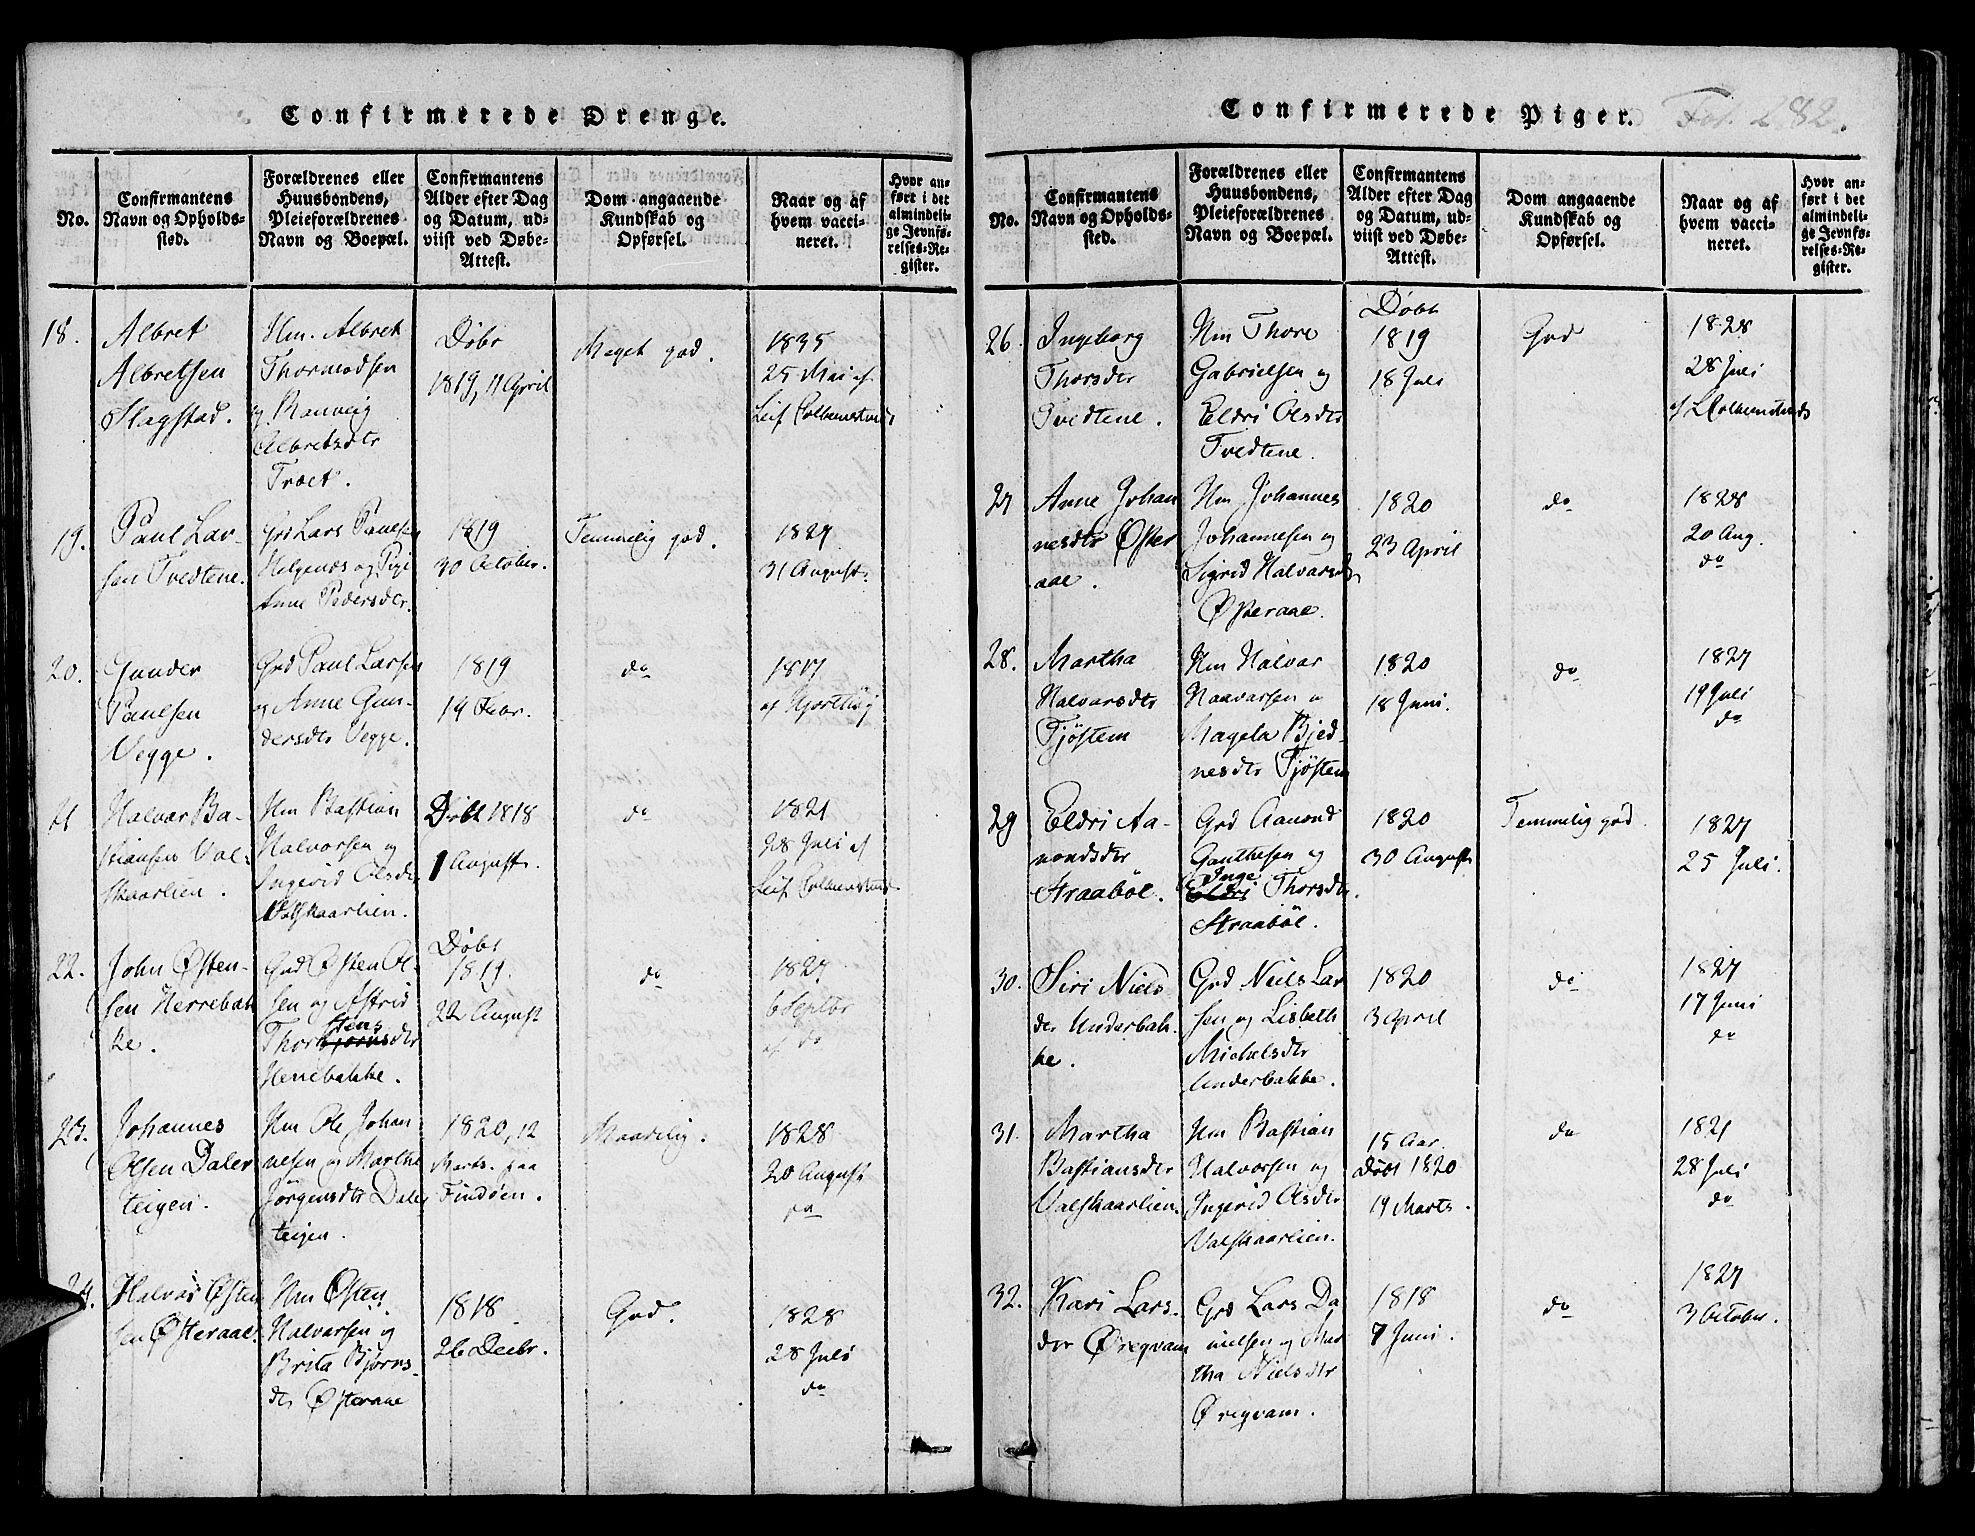 Confirmerede Drenge.
No.
Confirmantens
Navn og Opholds-
sted.
Forældrenes eller
Huusbondens,
Pleieforældrenes
Navn og Boepæl.
Confirmantens
Alder efter Dag
og Datum, ud-
viist ved Døbe-
Attest.
Dom angaaende
Kundskab og
Opførsel.
Naar og af
hvem vacci-
neret.
Hvor an-
ført i det
almindeli-
ge Jevnfø-
relses-Re-
gister.
18.
Albret
Albretsen
Slagstad.
Hm. Albret
Thormodsen
og Ranveig
Albretsdtr
Træet.
Døbt
1819, 11 April
Meget god.
1835
25 Mai af
Leif
19.
Paul Lar-
sen Tvedtene.
Grd Lars Paulsen
Helgenæs og Pige
Anne Pedersdtr.
1819
30 October.
Temmelig god.
1827
31 August
20.
Gunder
Paulsen
Vegge.
Grd Paul Larsen
og Anne Gun-
dersdtr Vegge.
1819
19 Febr.
do
18
af Hjorthøy
21
Halvar Ba-
stiansen Val-
skaarlien.
Hm Bastian
Halvorsen og
Ingerid Olsdtr
Valskaarlien.
Døbt 1818
1 August.
do
1821
28 Juli af
Leif
22.
John Østen-
sen Herrebak
ke.
Grd Østen Ol-
sen og Astrid
Thorstensdtr
Herrebakke.
Døbt
1819.
22 August
do
1827
6 Septbr
af do
23.
Johannes
Olsen Daler
teigen.
Hm Ole Johan
nesen og Marthe
Jörgensdtr Daler
teigen.
1820, 12
Marts. paa
Findöen.
Maadelig.
1828
20 August
do
24.
Halvar Østen
sen Østeraae.
Hm Østen
Halvarsen og
Brita Bjørns-
dtr Østeraae
1818
26 Decbr.
God.
1828
28 Juli
do
Confirmerede Piger.
Fol. 282.
No.
Confirmantens
Navn og Opholds-
sted.
Forældrenes eller
Huusbondens,
Pleieforældrenes
Navn og Boepæl.
Confirmantens
Alder efter Dag
og Datum, ud-
viist ved Døbe-
Attest.
Dom angaaende
Kundskab og
Opførsel.
Naar og af
hvem vacci-
neret.
Hvor an-
ført i det
almindeli-
ge Jevnfø-
relses-Re-
gister.
26.
Ingeborg
Thorsdtr
Tvedtene.
Hm Thore
Gabrielsen og
Eldri Olsdtr
Tvedtene.
Døbt
1819
18 Juli
God
1828
28 Juli
af
27
Anne Johan
nesdtr Øster
aae.
Hm Johannes
Johannesen og
Sigrid Halvarsdtr
Østeraae.
1820
23 April
do
1828
20 Aug.
do
28.
Martha
Halvarsdtr
Tjöstem
Hm Halvar
Haavarsen og
Magela Bjed-
nesdtr Tjöstem
1820
18 Juni.
do
1827
19 Juli
do
29
Eldri Aa-
nondsdtr
Straaböl.
Grd Aanond
Gauthesen og
Inge
Eldri Thorsdtr.
Straaböl.
1820
30 August
Temmelig god.
1827
25 Juli.
30.
Siri Niels
dtr Underbak-
ke.
Grd Niels Lar
sen og Lisbeth
Michelsdtr
Underbakke.
1820
3 April
do
1827
17 Juni
do
31.
Martha
Bastiansdtr
Valskaarlien.
Hm Bastian
Halvorsen og
Ingerid Olsdtr
Valskaarlien.
15 Aar.
Døbt 1820
19 Marts.
do
1821
28 Juli
do
32.
Kari Lars-
dtr Øregvam
Grd Lars Da
nielsen og Mar
tha Nielsdtr
Øregvam.
1818
7 Juni.
do
1827
3 October.